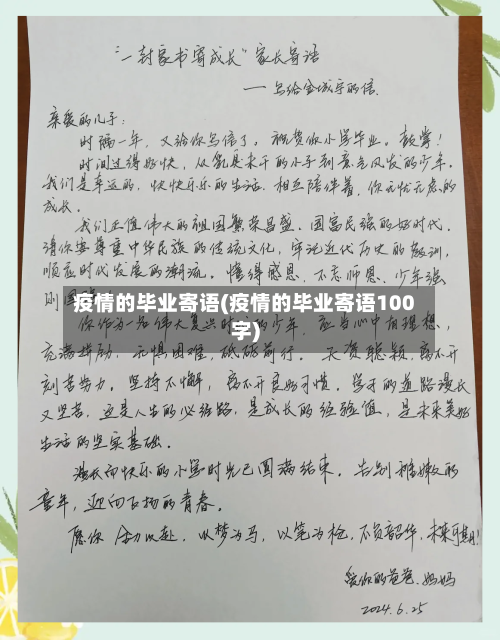 “一封家书寄成长”家长寄语
——写给金城宇的信.
亲爱的儿子:
时隔一年，又给你写信了。祝贺你小学毕业。鼓掌!
时间过得好快，从乳臭未干的小子到意气风发的少年。
我们是幸运的，快快乐乐的生活，相互陪伴着，你无忧无虑的
成长。
我们正值伟大的祖国繁荣昌盛、国富民强的好时代。
请你要尊重中华民族的传统文化，牢记近代历史的教训，
顺应时代发展的潮流。懂得感恩、不忘师恩、少年强
则国
疫情的毕业寄语(疫情的毕业寄语100
字)
你作为一名伟大复兴时的少年，应当心中有理想，
充满拼劲，无惧困难，砥砺前行。天资聪颖，离不开
刻苦努力。坚持不懈，离不开良好习惯。学习的道路漫长
又坚苦，这是人生的必经路，是成长的经验值，是未来美好
生活的坚实基础。
漫长而快乐的小学时光已圆满结束。告别稚嫩的
童年，迎向飞扬的青春。
愿你全力以赴，以梦为马，以笔为枪，不负韶华，未来可期!
爱你的爸爸、妈妈
2024.6.25